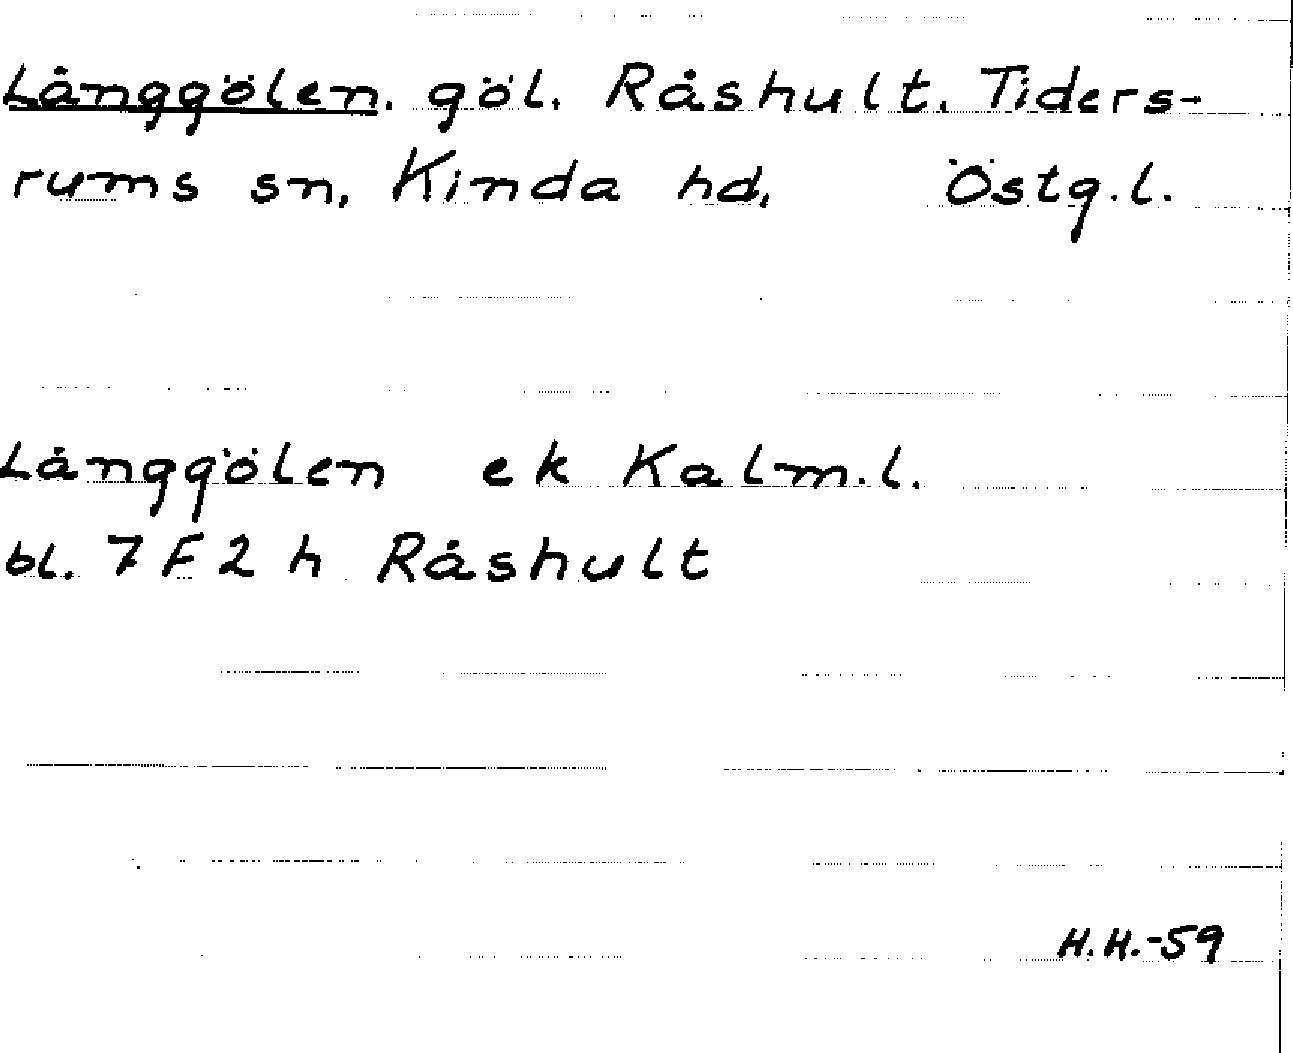 Långgölen. göl. Råshult. Tiders-
rums sn, Kinda hd, Östg.l.
Långgölen ek Kalm.l.
bl. 7 F 2 h Råshult
H.H.-59